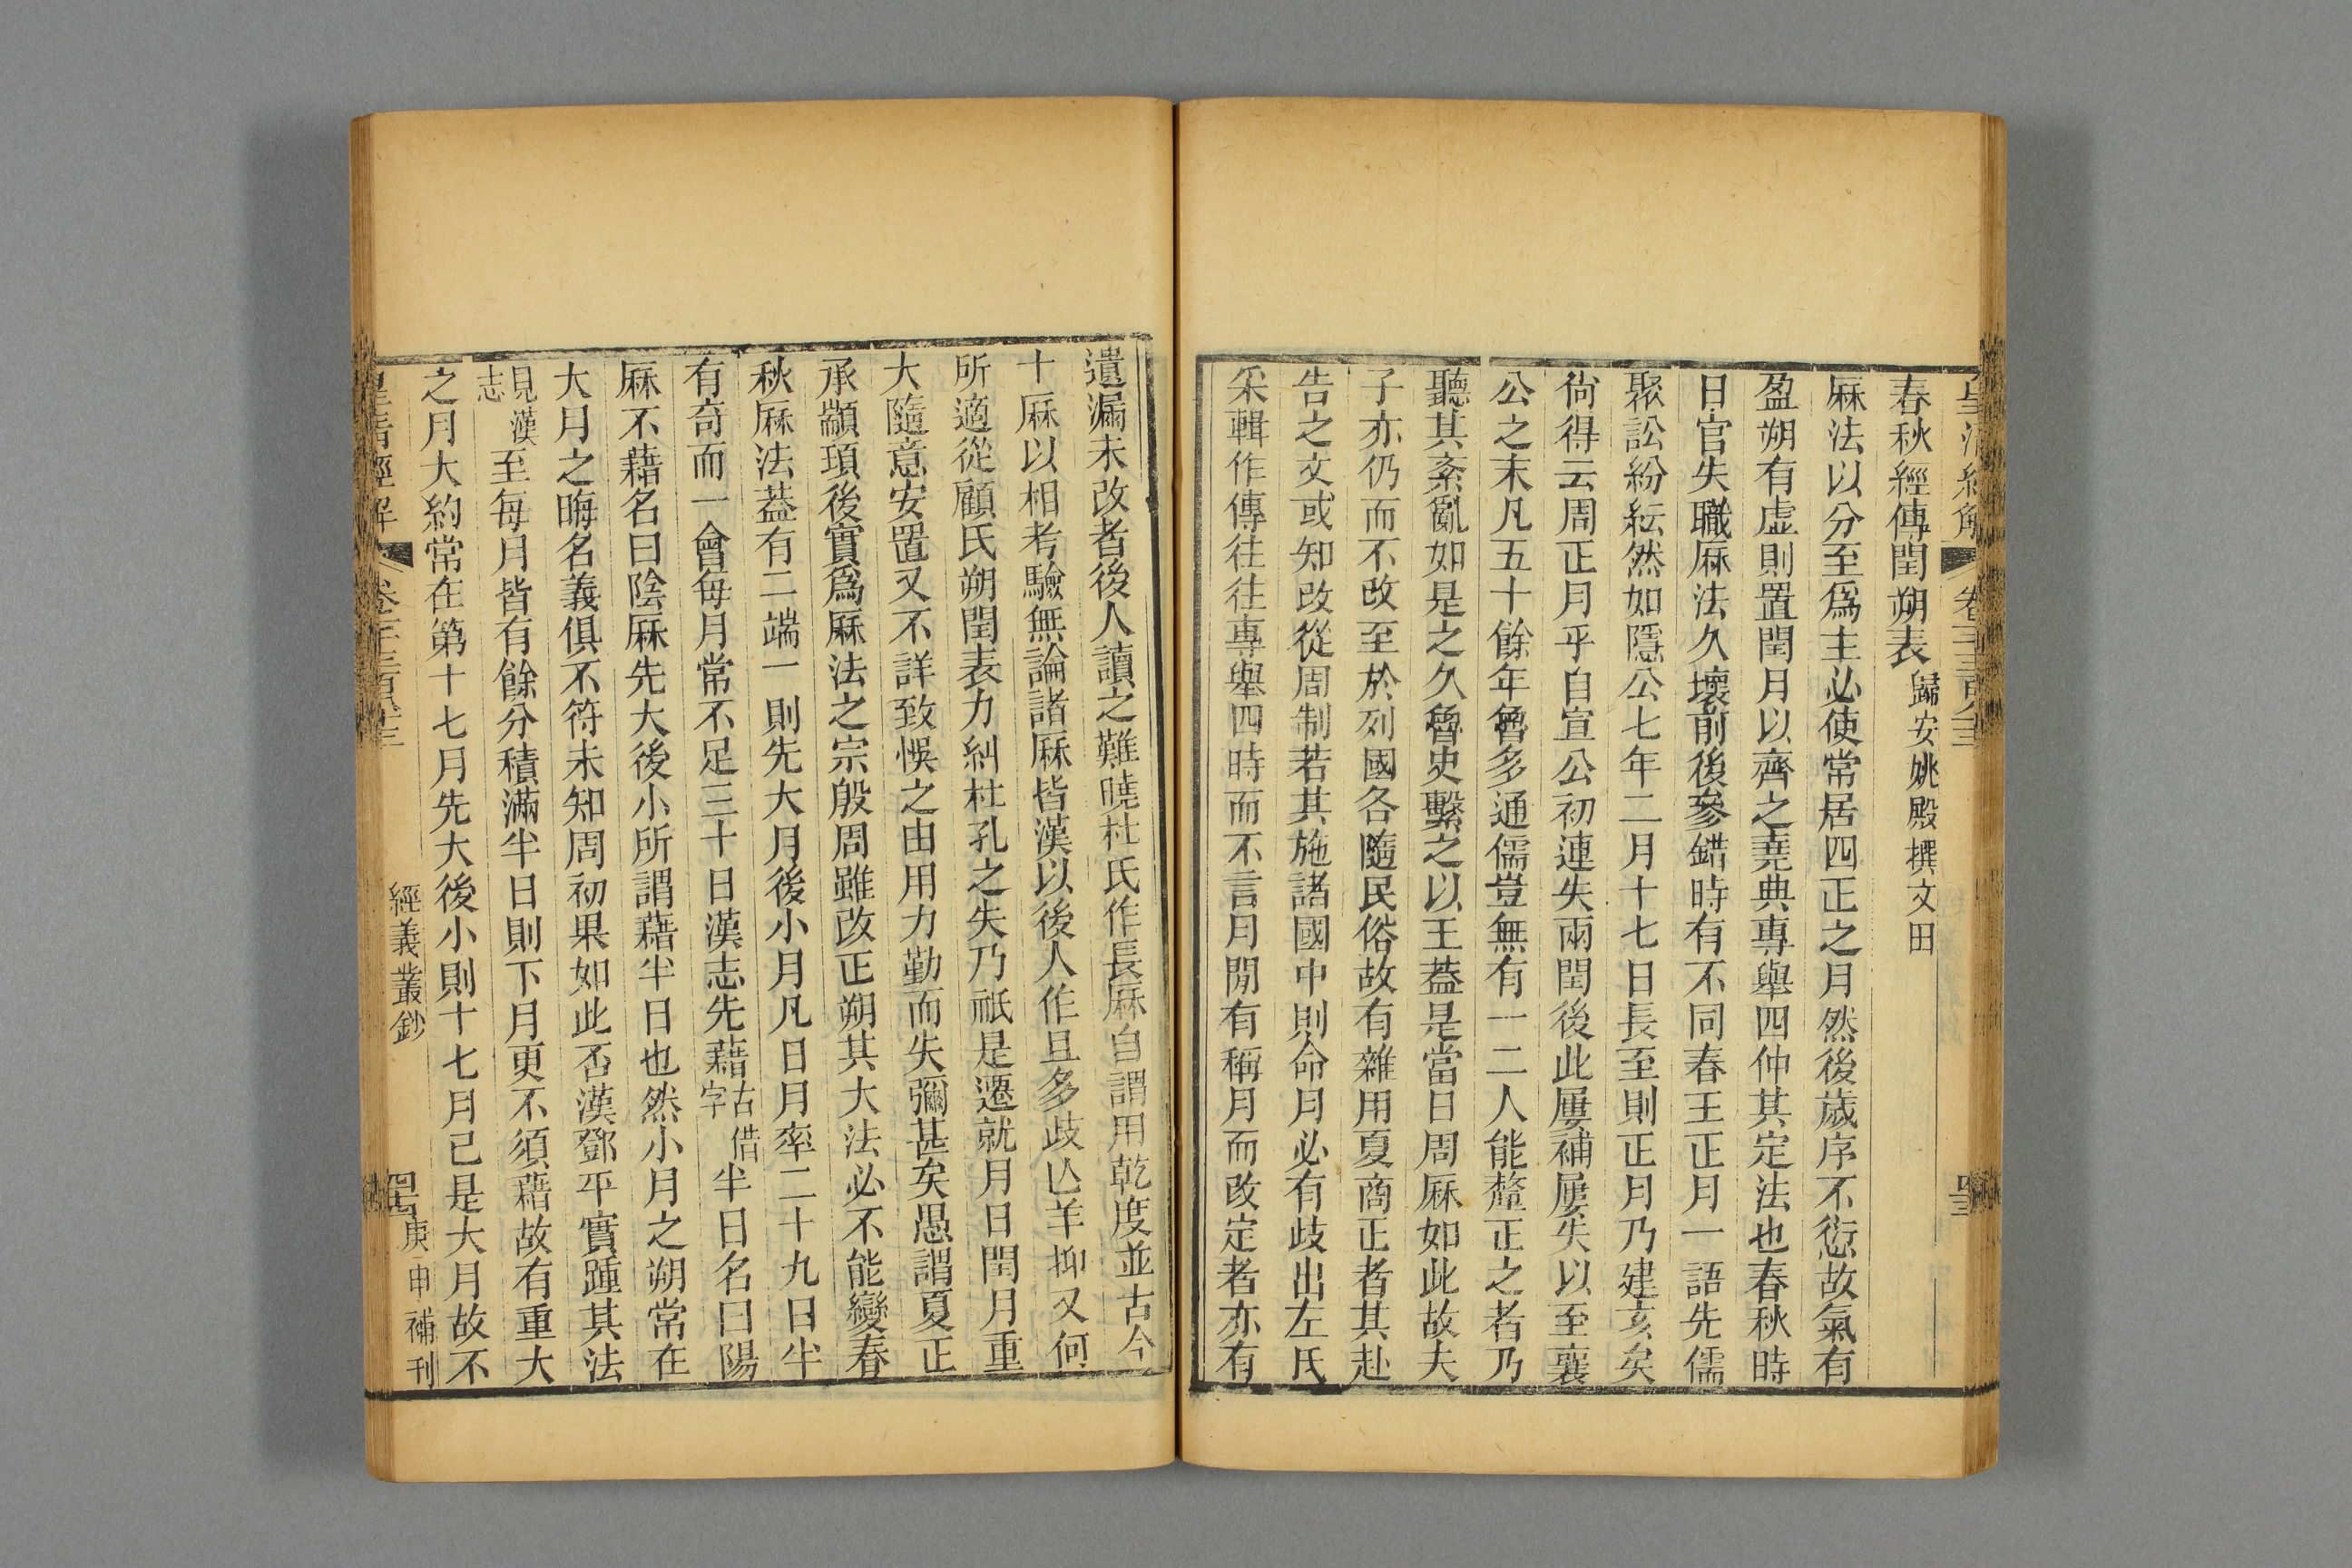 春秋經傳閏朔表 歸安姚殿撰文田
厤法以分至爲主必使常居四正之月然後歲序不愆故氣有
盈朔有虛則置閏月以齊之堯典專舉四仲其定法也春秋時
日官失職厤法久壞前後參錯時有不同春王正月一語先儒
聚訟紛紜然如隱公七年二月十七日長至則正月乃建亥矣
尙得云周正月乎自宣公初連失兩閏後此屢補屢失以至襄
公之末凡五十餘年魯多通儒豈無有一二人能釐正之者乃
聽其紊亂如是之久魯史繫之以王葢是當日周厤如此故夫
子亦仍而不改至於列國各隨民俗故有雜用夏商正者其赴
告之文或知改從周制若其施諸國中則命月必有歧出左氏
采輯作傳往往專舉四時而不言月閒有稱月而改定者亦有
遺漏未改者後人讀之難曉杜氏作長厤自謂用乾度並古今
十厤以相考驗無論諸厤皆漢以後人作且多歧亾羊抑又何
所適從顧氏朔閏表力糾杜孔之失乃祇是遷就月日閏月重
大隨意安置又不詳致悞之由用力勤而失彌甚矣愚謂夏正
承顓頊後實爲厤法之宗殷周雖改正朔其大法必不能變春
秋厤法葢有二端一則先大月後小月凡日月率二十九日半
有奇而一會每月常不足三十日漢志先藉古借字半日名曰陽
厤不藉名曰陰厤先大後小所謂藉半日也然小月之朔常在
大月之晦名義俱不符未知周初果如此否漢鄧平實踵其法
見漢志至每月皆有餘分積滿半日則下月更不須藉故有重大
之月大約常在第十七月先大後小則十七月已是大月故不
皇清經解 卷一千三百八十三 經義叢鈔 庚申補刊